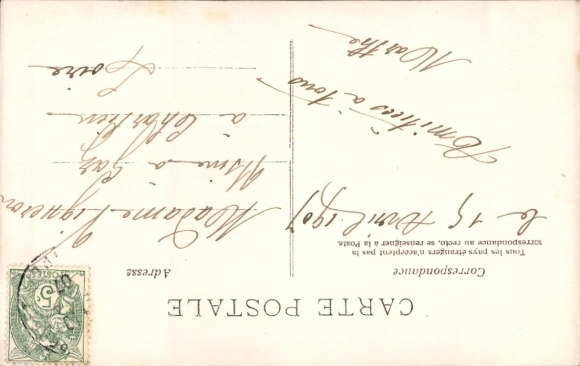 CARTE POSTALE
Correspondance
Tous les pays étrangers n'acceptent pas la
correspondance au recto, se renseigner à la Poste.
le 15 Avril 1907
Amitiés à tous
Marthe
Adresse
Madame Vigneron
Usine à Gaz
à
Loire
5